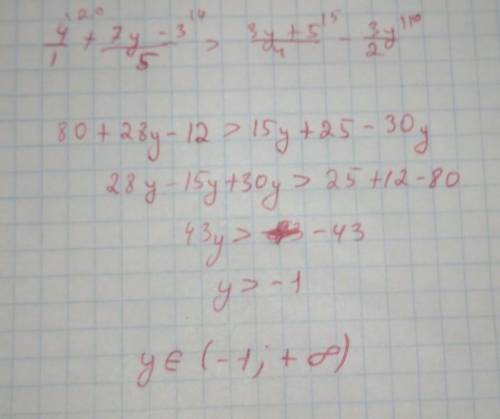 4/1 ^20 + (7y - 3)/5 ^4 > (3y + 5)/4 ^5 - 3y/2 ^10
80 + 28y - 12 > 15y + 25 - 30y
28y - 15y + 30y > 25 + 12 - 80
43y > - 43
y > - 1
y ∈ (-1; + ∞)